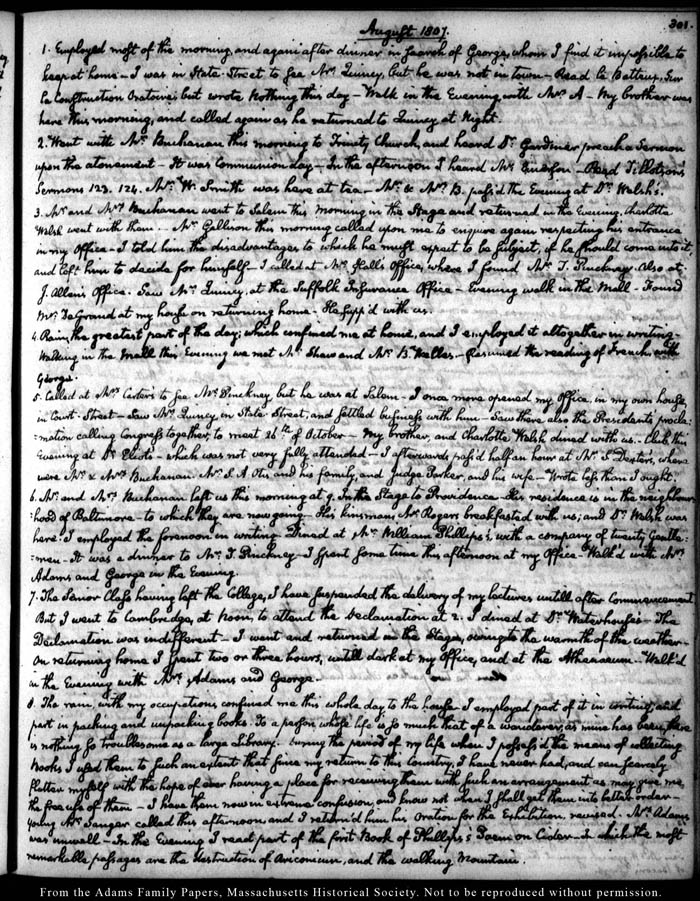 301.
August 1807.
1. Employed most of the morning, and again after dinner in search of George, whom I find it impossible to
keep at home — I was in State Street to see Mr. Quincy, but he was not in town — Read Le Batteux, Sur
la Construction Oratoire; but wrote Nothing this day — Walk in the Evening with Mrs. A — My brother was
here this morning, and called again as he returned to Quincy at Night.
2. Went with Mr. Buchanan this morning to Trinity Church, and heard Dr. Gardiner preach a Sermon
upon the atonement — It was Communion day — In the afternoon I heard Mr. Emerson — Read Tillotson's
Sermons 123. 124. Mr. W. Smith was here at tea — Mr. & Mrs. B. pass'd the Evening at Dr. Welsh's.
3. Mr and Mrs Buchanan went to Salem this morning in the Stage and returned in the Evening, Charlotte
Welsh went with them — Mr. Gallison this morning called upon me to enquire again respecting his entrance
in my Office — I told him the disadvantages to which he must expect to be subject, if he should come into it,
and left him to decide for himself — I called at Mr. Hall's Office, where I found Mr. T. Pinckney. Also at
J. Allen's Office. Saw Mr. Quincy, at the Suffolk Insurance Office — Evening walk in the Mall — Found
Mr. De Grand at my house on returning home — He supp'd with us.
4. Rain, the greatest part of the day; which confined me at home, and I employed it altogether in writing —
Walking in the Mall this Evening we met Mr Shaw and Mr. B. Welles — Resumed the reading of French, with
George.
5. Called at Mrs Carter's to see Mr. Pinckney, but he was at Salem — I once more opened my Office, in my own house,
in Court-Street — Saw Mr. Quincy, in State Street, and settled business with him — Saw there also the President's procla-
-mation calling Congress together, to meet 26th of October — My brother, and Charlotte Welsh dined with us — Club this
Evening at Dr. Eliot's — which was not very fully attended — I afterwards pass'd half an hour at Mr. S. Dexter's, where
were Mr. & Mrs Buchanan Mr. S. A. Otis and his family, and Judge Parker, and his wife — Wrote less than I ought.
6. Mr. and Mrs. Buchanan left us this morning at 9. In the Stage to Providence — His residence is in the neighbour-
-hood of Baltimore — to which they are now going — His kinsman Mr. Rogers breakfasted with us; and Dr. Welsh was
here. I employed the forenoon in writing — Dined at Mr. William Phillips's, with a company of twenty Gentle-
-men — It was a dinner to Mr. T. Pinckney — I spent some time this afternoon at my Office — Walk'd with Mrs.
Adams and George in the Evening.
7. The Senior Class having left the College, I have suspended the delivery of my lectures until after Commencement
But I went to Cambridge, at Noon, to attend the Declamation at 2. I dined at Dr. Waterhouse's — The
Declamation was indifferent — I went and returned in the Stage, owing to the warmth of the weather —
On returning home I spent two or three hours, until dark at my Office, and at the Athenaeum — Walk'd
in the Evening with Mrs. Adams and George.
8. The rain, with my occupations, confined me this whole day to the house I employed part of it in writing, and
part in packing and unpacking books. To a person whose life is so much that of a wanderer, as mine has been, there
is nothing so troublesome as a large Library. During the period of my life when I possess'd the means of collecting
Books I used them to such an extent that since my return to this Country, I have never had, and can scarcely
flatter myself with the hope of ever having a place for receiving them with such an arrangement as may give me
the free use of them — I have them now in extreme confusion, and know not when I shall get them into better order —
Young Mr. Sanger called this afternoon, and I return'd him his Oration for the Exhibition, revised. Mrs. Adams
was unwell — In the Evening I read part of the first Book of Phillips's Poem on Cider — In which the most
remarkable passages are the destruction of Ariconium, and the walking Mountain.
From the Adams Family Papers, Massachusetts Historical Society. Not to be reproduced without permission.